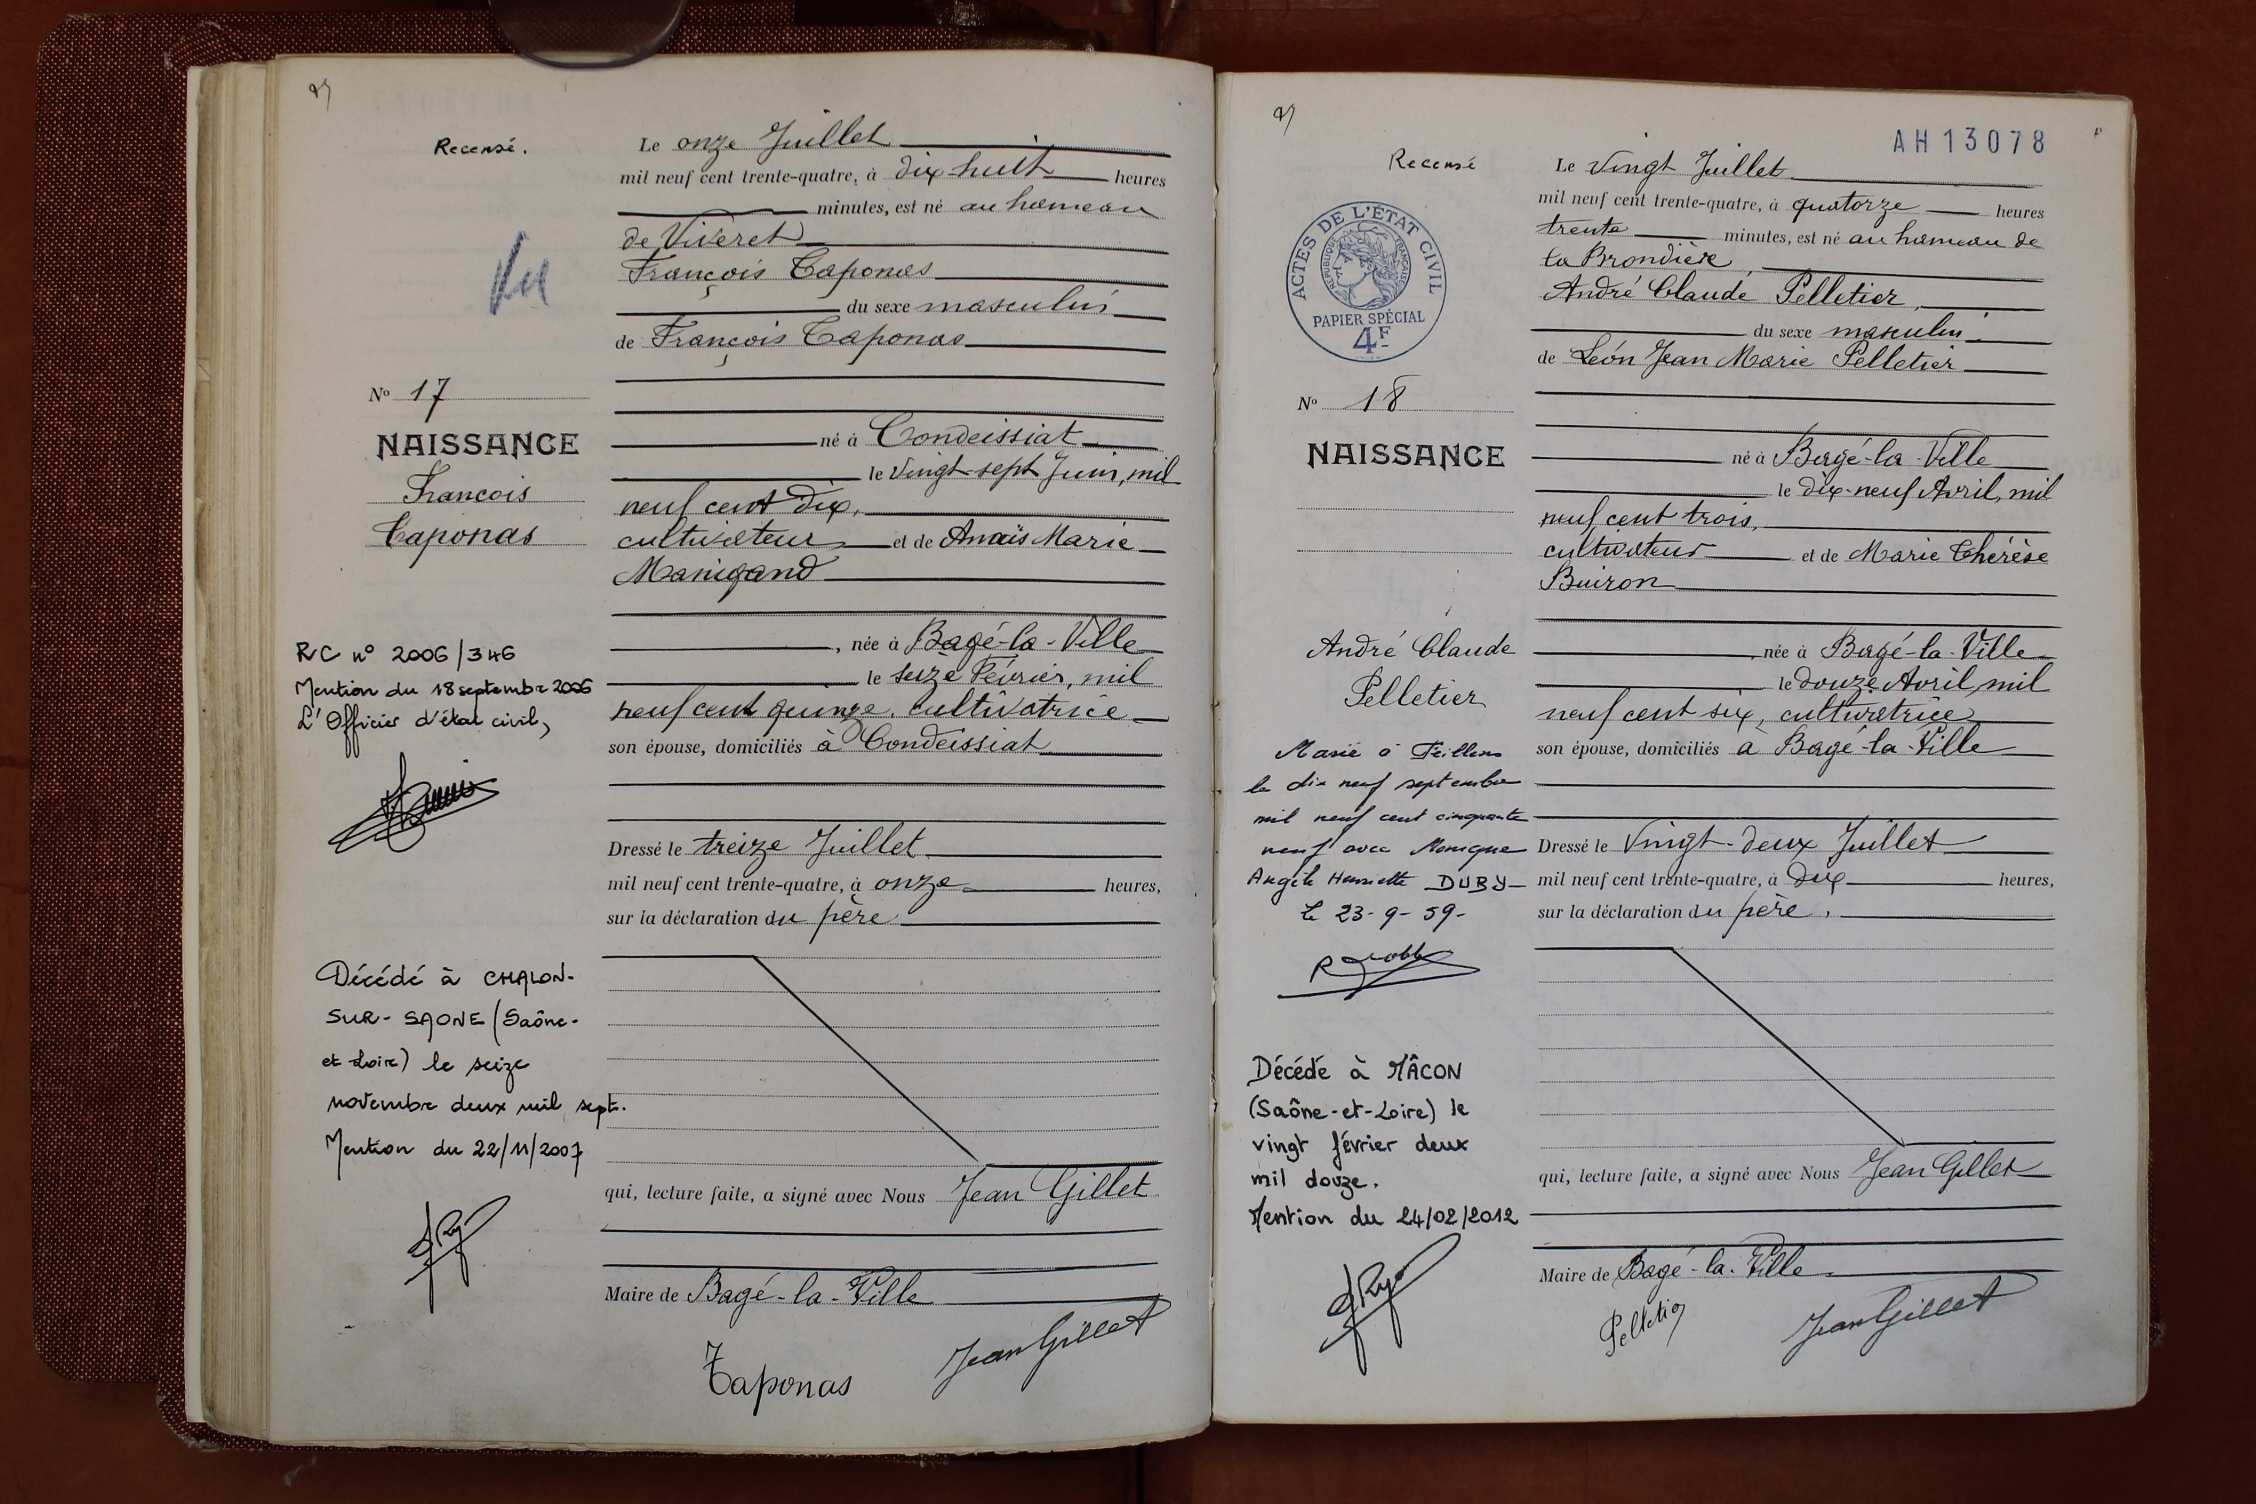 Recensé.
Vu
N° 17
NAISSANCE
François
Taponas
RC n° 2006/346
Mention du 18 septembre 2006
L'Officier d'état civil,
Décédé à CHALON-
SUR-SAONE (Saône-
et-Loire) le seize
novembre deux mil sept.
Mention du 22/11/2007
Le onze Juillet
mil neuf cent trente-quatre, à dix-huit heures
minutes, est né au hameau
de Viveret
François Taponas
du sexe masculin
de François Taponas
né à Condeissiat
le vingt-sept Juin, mil
neuf cent dix,
cultivateur et de Anaïs Marie
Manigand
, née à Bagé-la-Ville
le seize Février, mil
neuf cent quinze, cultivatrice
son épouse, domiciliés à Condeissiat
Dressé le treize Juillet
mil neuf cent trente-quatre, à onze heures,
sur la déclaration du père
qui, lecture faite, a signé avec Nous Jean Gillet
Maire de Bagé-la-Ville
Taponas
Jean Gillet
AH13078
Recensé
ACTES DE L'ÉTAT CIVIL
RÉPUBLIQUE FRANÇAISE
PAPIER SPÉCIAL
4F
N° 18
NAISSANCE
André Claude
Pelletier
Marié à Feillens
le dix neuf septembre
mil neuf cent cinquante
neuf avec Monique
Angèle Henriette DUBY
le 23-9-59-
Décédé à MÂCON
(Saône-et-Loire) le
vingt février deux
mil douze.
Mention du 24/02/2012
Le vingt Juillet
mil neuf cent trente-quatre, à quatorze heures
trente minutes, est né au hameau de
la Brondière
André Claude Pelletier,
du sexe masculin
de Léon Jean Marie Pelletier
né à Bagé-la-Ville
le dix-neuf Avril, mil
neuf cent trois,
cultivateur et de Marie Thérèse
Buiron
, née à Bagé-la-Ville
le douze Avril, mil
neuf cent six, cultivatrice
son épouse, domiciliés à Bagé-la-Ville
Dressé le Vingt-deux Juillet
mil neuf cent trente-quatre, à dix heures,
sur la déclaration du père,
qui, lecture faite, a signé avec Nous Jean Gillet
Maire de Bagé-la-Ville
Pelletier
Jean Gillet